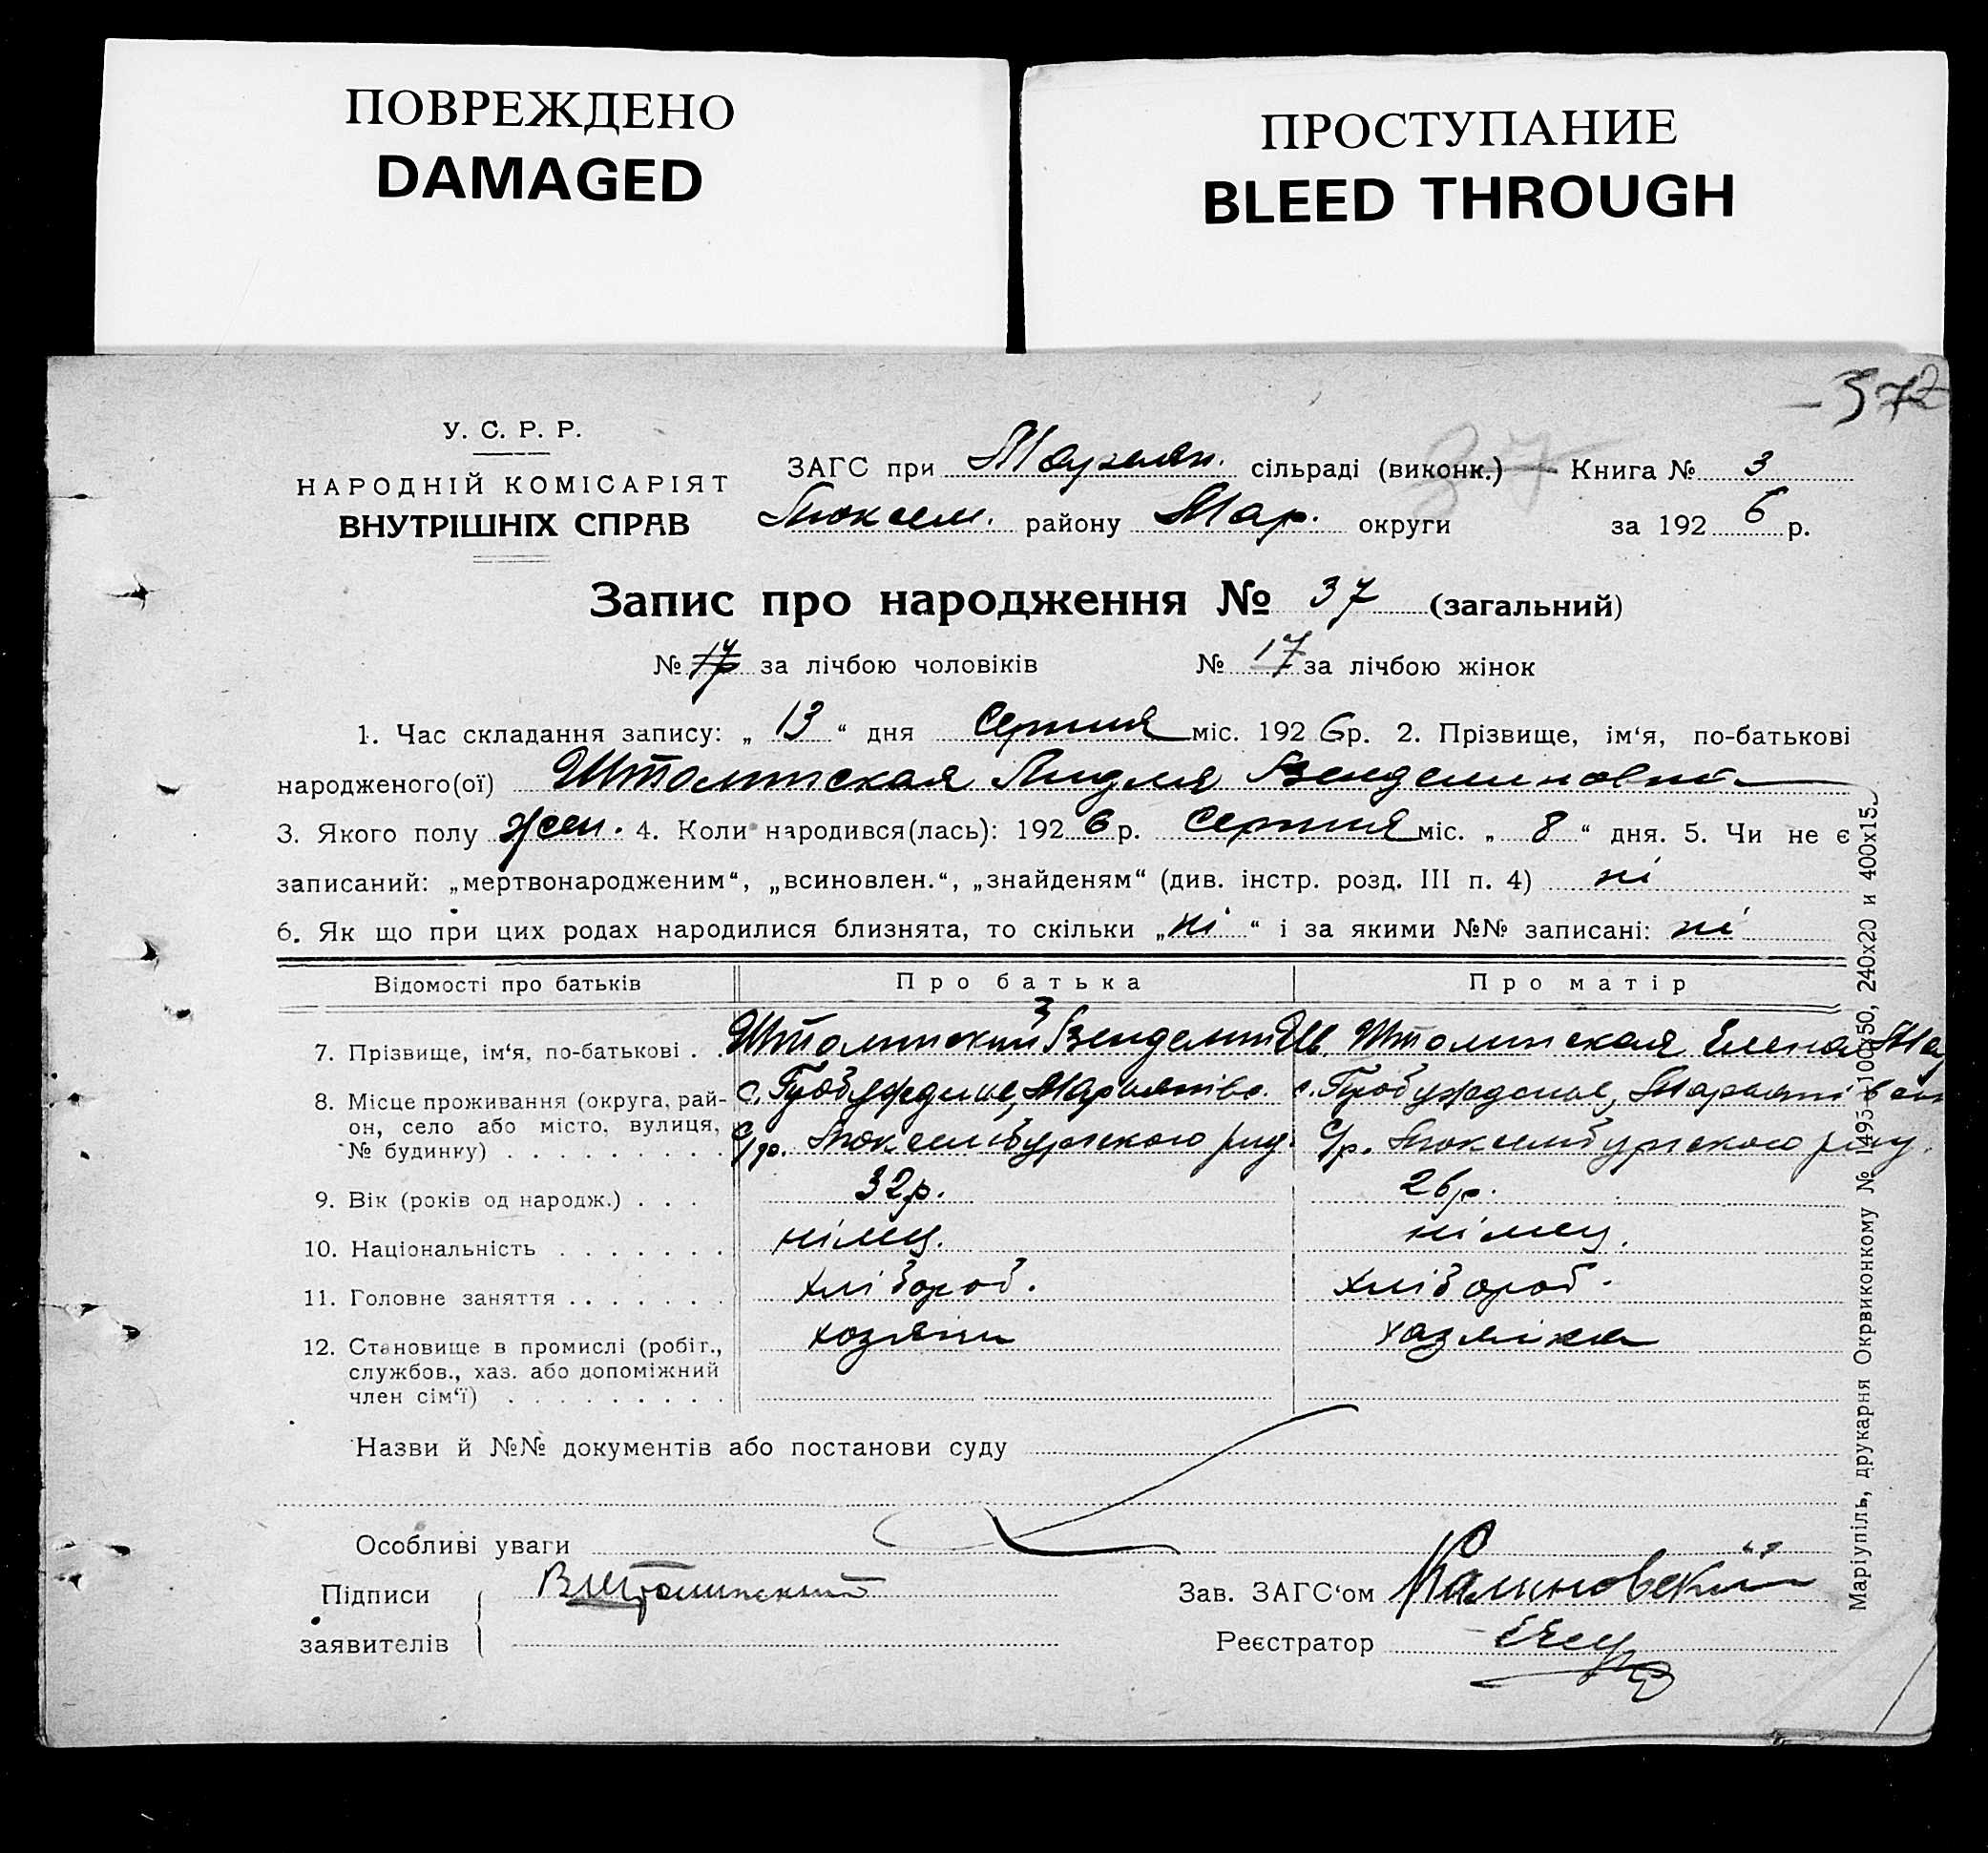 ПОВРЕЖДЕНО
DAMAGED
ПРОСТУПАНИЕ
BLEED THROUGH
572
37
У. С. Р. Р.
НАРОДНІЙ КОМІСАРІЯТ
ВНУТРІШНІХ СПРАВ
ЗАГС при сільраді (виконк.) Книга № 3
Люксем. району Мар. округи за 1926 р.
Запис про народження № 37 (загальний)
№ 17 за лічбою чоловіків № 17 за лічбою жінок
1. Час складання запису: „ 13 “ дня Серпня міс. 1926 р. 2. Прізвище, ім‘я, по-батькові
народженого(ої) Штолинская Лидия
3. Якого полу жен. 4. Коли народився(лась): 1926 р. Серпня міс. „ 8 “ дня. 5. Чи не є
записаний: „мертвонародженим“, „всиновлен.“, „знайденям“ (див. інстр. розд. III п. 4) ні
6. Як що при цих родах народилися близнята, то скільки „ ні “ і за якими №№ записані: ні
Відомості про батьків Про батька Про матір
7. Прізвище, ім‘я, по-батькові . . Штолинский Штолинская Елена
8. Місце проживання (округа, рай-
он, село або місто, вулиця,
№ будинку) . . . . . . . . .
с. Пробуждение, с. Пробуждение,
с/р. Люксембургского с/р. Люксембургского
9. Вік (років од народж.) . . . 32 р. 26 р.
10. Національність . . . . . . . німец. німец.
11. Головне заняття . . . . . . . хлібороб. хлібороб.
12. Становище в промислі (робіт.,
службов., хаз. або допоміжний
член сім‘ї) . . . . . . . . .
хозяин хазяіка
Назви й №№ документів або постанови суду
Особливі уваги
Підписи
заявителів
ВШтолинский
Зав. ЗАГС‘ом Калиновский
Реєстратор
Маріупіль, друкарня Окрвиконкому № 1495-100х50, 240х20 и 400х15.